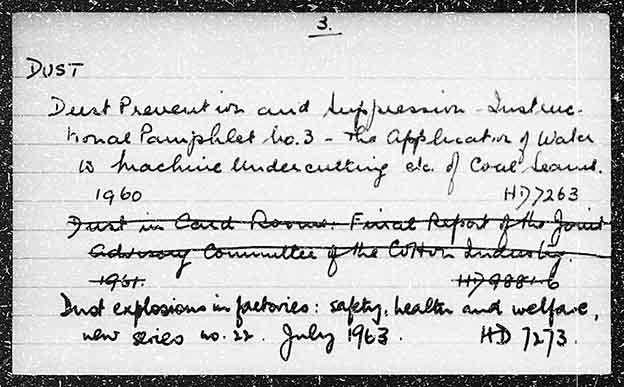 3.
DUST
Dust Prevention and Suppression - Instruc-
tional Pamphlet No. 3 - The Application of Water
to Machine Undercutting etc. of Coal Seams.
1960 HD7263
Dust in Card Rooms: Final Report of the Joint
Advisory Committee of the Cotton Industry.
1961. HD9881.6
Dust explosions in factories: safety, health and welfare,
new series no. 22. July 1963. HD 7273.